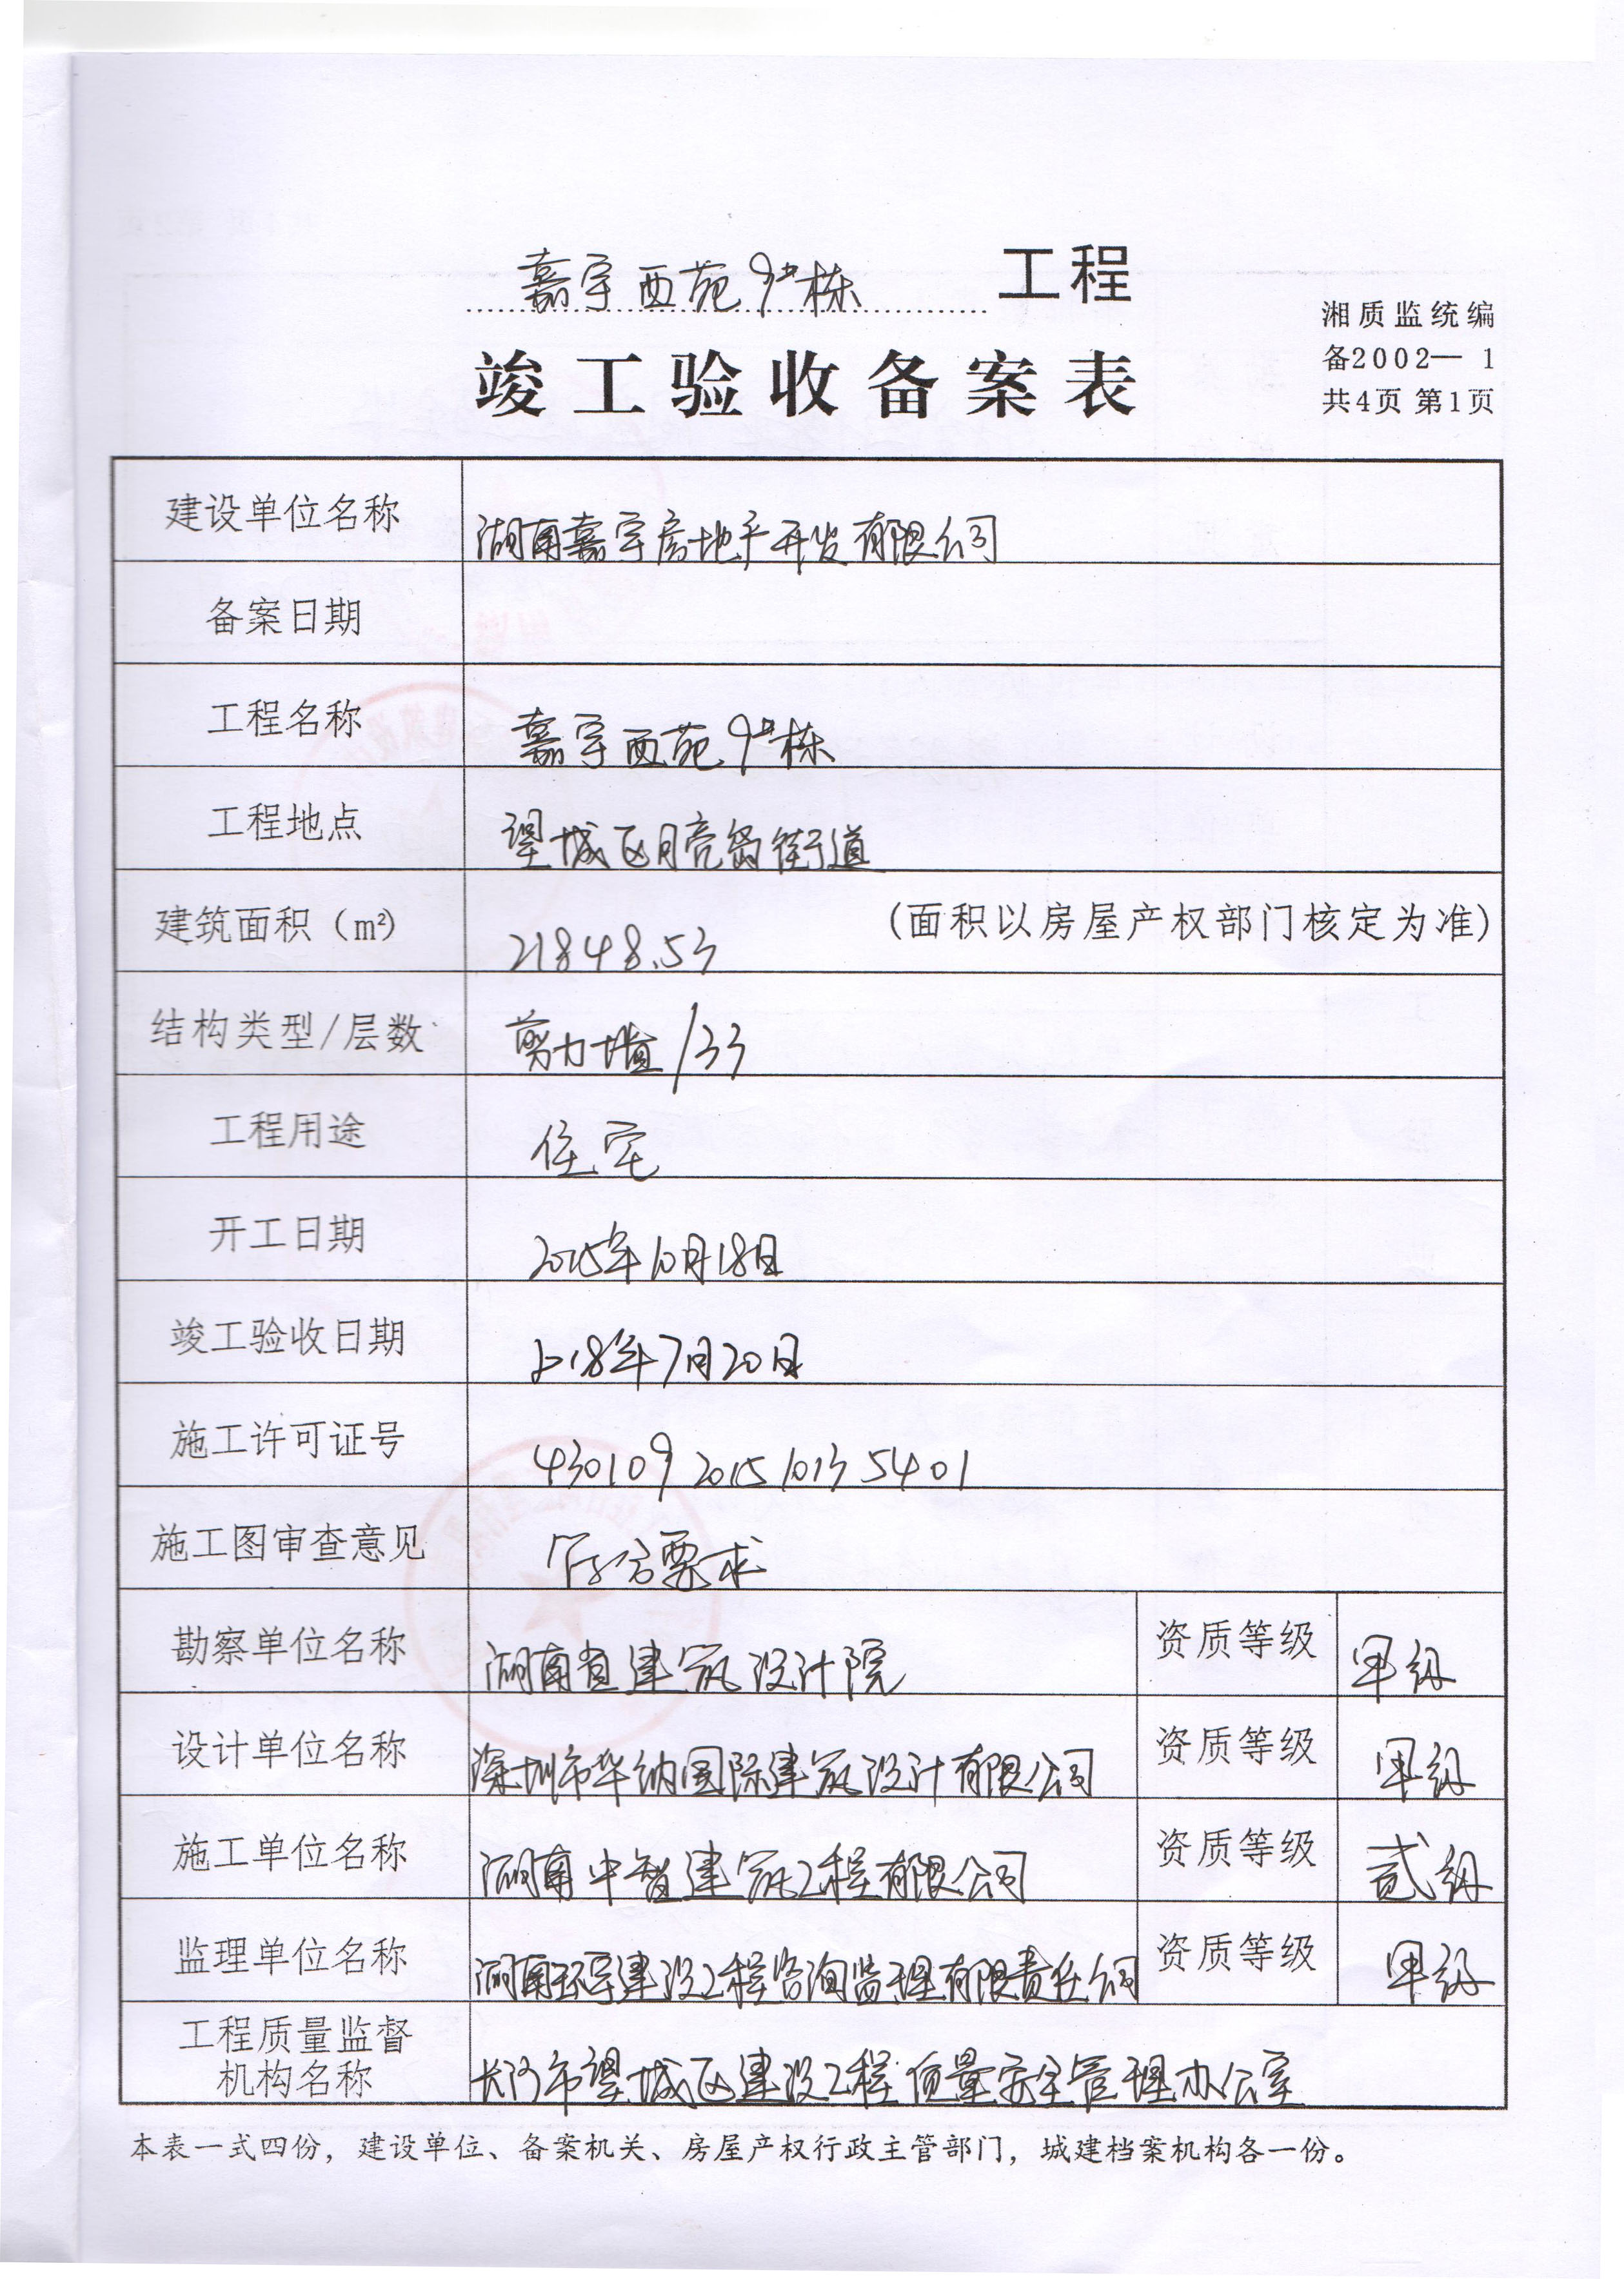 嘉宇西苑9#栋 工程
竣工验收备案表
湘质监统编
备2002— 1
共4页 第1页
建设单位名称 湖南嘉宇房地产开发有限公司
备案日期
工程名称 嘉宇西苑9#栋
工程地点 望城区月亮岛街道
建筑面积（m²） 21848.53 （面积以房屋产权部门核定为准）
结构类型/层数 剪力墙/33
工程用途 住宅
开工日期 2015年10月18日
竣工验收日期 2018年7月20日
施工许可证号 430109201510135401
施工图审查意见 符合要求
勘察单位名称 湖南省建筑设计院 资质等级 甲级
设计单位名称 深圳市华纳国际建筑设计有限公司 资质等级 甲级
施工单位名称 湖南中智建筑工程有限公司 资质等级 贰级
监理单位名称 湖南环宇建设工程咨询监理有限责任公司 资质等级 甲级
工程质量监督
机构名称 长沙市望城区建设工程质量安全管理办公室
本表一式四份，建设单位、备案机关、房屋产权行政主管部门，城建档案机构各一份。